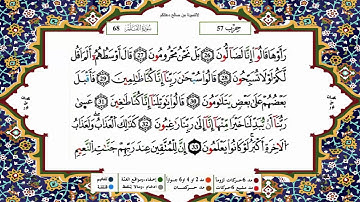 لا تنسونا من صالح دعائكم
حزب 57
سورة القلم 68
رَأَوْهَا قَالُوا إِنَّا لَضَالُّونَ 26 بَلْ نَحْنُ مَحْرُومُونَ 27 قَالَ أَوْسَطُهُمْ أَلَمْ أَقُل
لَّكُمْ لَوْلَا تُسَبِّحُونَ 28 قَالُوا سُبْحَٰنَ رَبِّنَا إِنَّا كُنَّا ظَٰلِمِينَ 29 فَأَقْبَلَ
بَعْضُهُمْ عَلَىٰ بَعْضٍ يَتَلَٰوَمُونَ 30 قَالُوا يَٰوَيْلَنَا إِنَّا كُنَّا طَٰغِينَ 31 عَسَىٰ
رَبُّنَا أَن يُبْدِلَنَا خَيْرًا مِّنْهَا إِنَّا إِلَىٰ رَبِّنَا رَٰغِبُونَ 32 كَذَٰلِكَ الْعَذَابُ وَلَعَذَابُ
الْآخِرَةِ أَكْبَرُ لَوْ كَانُوا يَعْلَمُونَ 33 إِنَّ لِلْمُتَّقِينَ عِندَ رَبِّهِمْ جَنَّٰتِ النَّعِيمِ